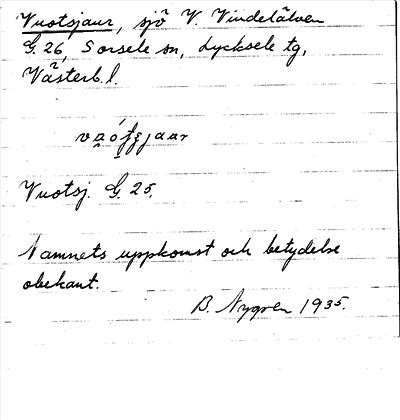 Vuotsjaur, sjö V. Vindelälven
G. 26, Sorsele sn, Lycksele tg,
Västerb. l.
Vuotsj. G. 25.
Namnets uppkomst och betydelse
obekant.
B. Nygren 1935.